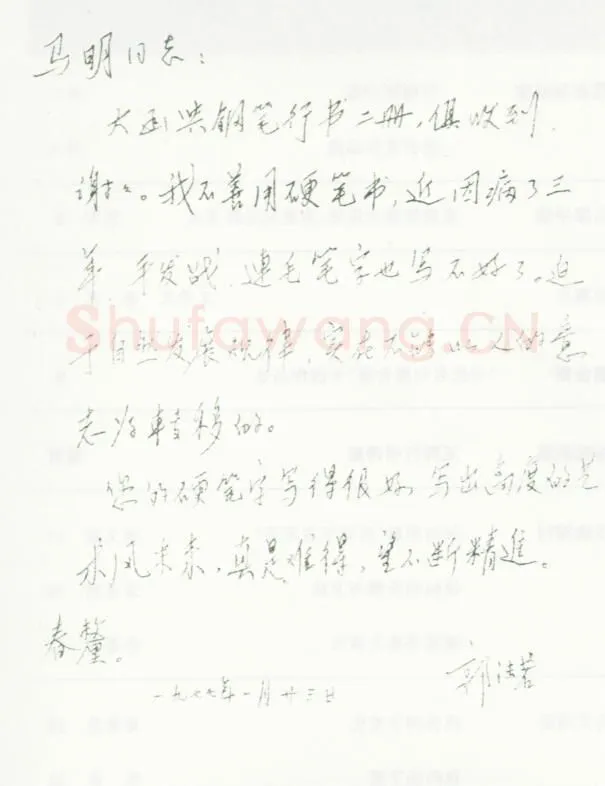 马明同志：
大函与钢笔行书二册，俱收到，
谢々。我不善用硬笔书，近因病了三
年，手发战，连毛笔字也写不好了。迫
于自然发展规律，实在不能以人的意
志为转移的。
您的硬笔字写得很好，写出高度的艺
术风味来，真是难得，望不断精进。
春釐。
郭沫若
一九七七年一月廿三日
Shufawang.CN